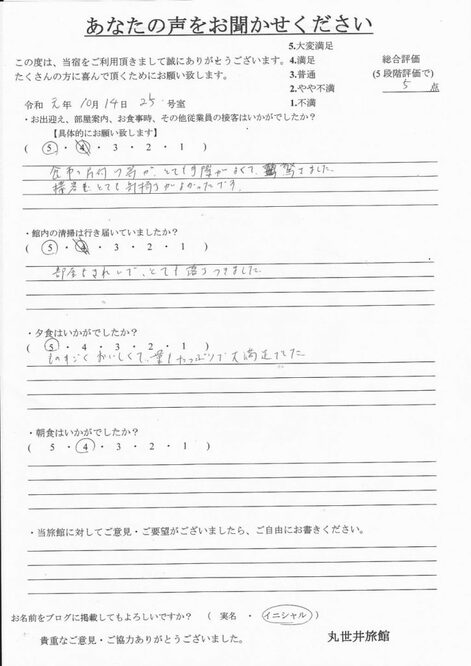 あなたの声をお聞かせください
この度は、当宿をご利用頂きまして誠にありがとうございます。
たくさんの方に喜んで頂くためにお願い致します。
5.大変満足
4.満足
3.普通
2.やや不満
1.不満
総合評価
(5段階評価で)
5 点
令和 元年 10月14日 25号室
・お出迎え、部屋案内、お食事時、その他従業員の接客はいかがでしたか？
【具体的にお願い致します】
( 5 ・ 4 ・ 3 ・ 2 ・ 1 )
食事の片付の者が、とても手際がよくて、驚きました
接客もとても気持ちがよかったです。
・館内の清掃は行き届いていましたか？
( 5 ・ 4 ・ 3 ・ 2 ・ 1 )
部屋もきれいで、とても落ちつきました
・夕食はいかがでしたか？
( 5 ・ 4 ・ 3 ・ 2 ・ 1 )
ものすごくおいしくて、量もたっぷりで大満足でした
・朝食はいかがでしたか？
( 5 ・ 4 ・ 3 ・ 2 ・ 1 )
・当旅館に対してご意見・ご要望がございましたら、ご自由にお書きください。
お名前をブログに掲載してもよろしいですか？ ( 実名 ・ イニシャル )
貴重なご意見・ご協力ありがとうございました。
丸世井旅館